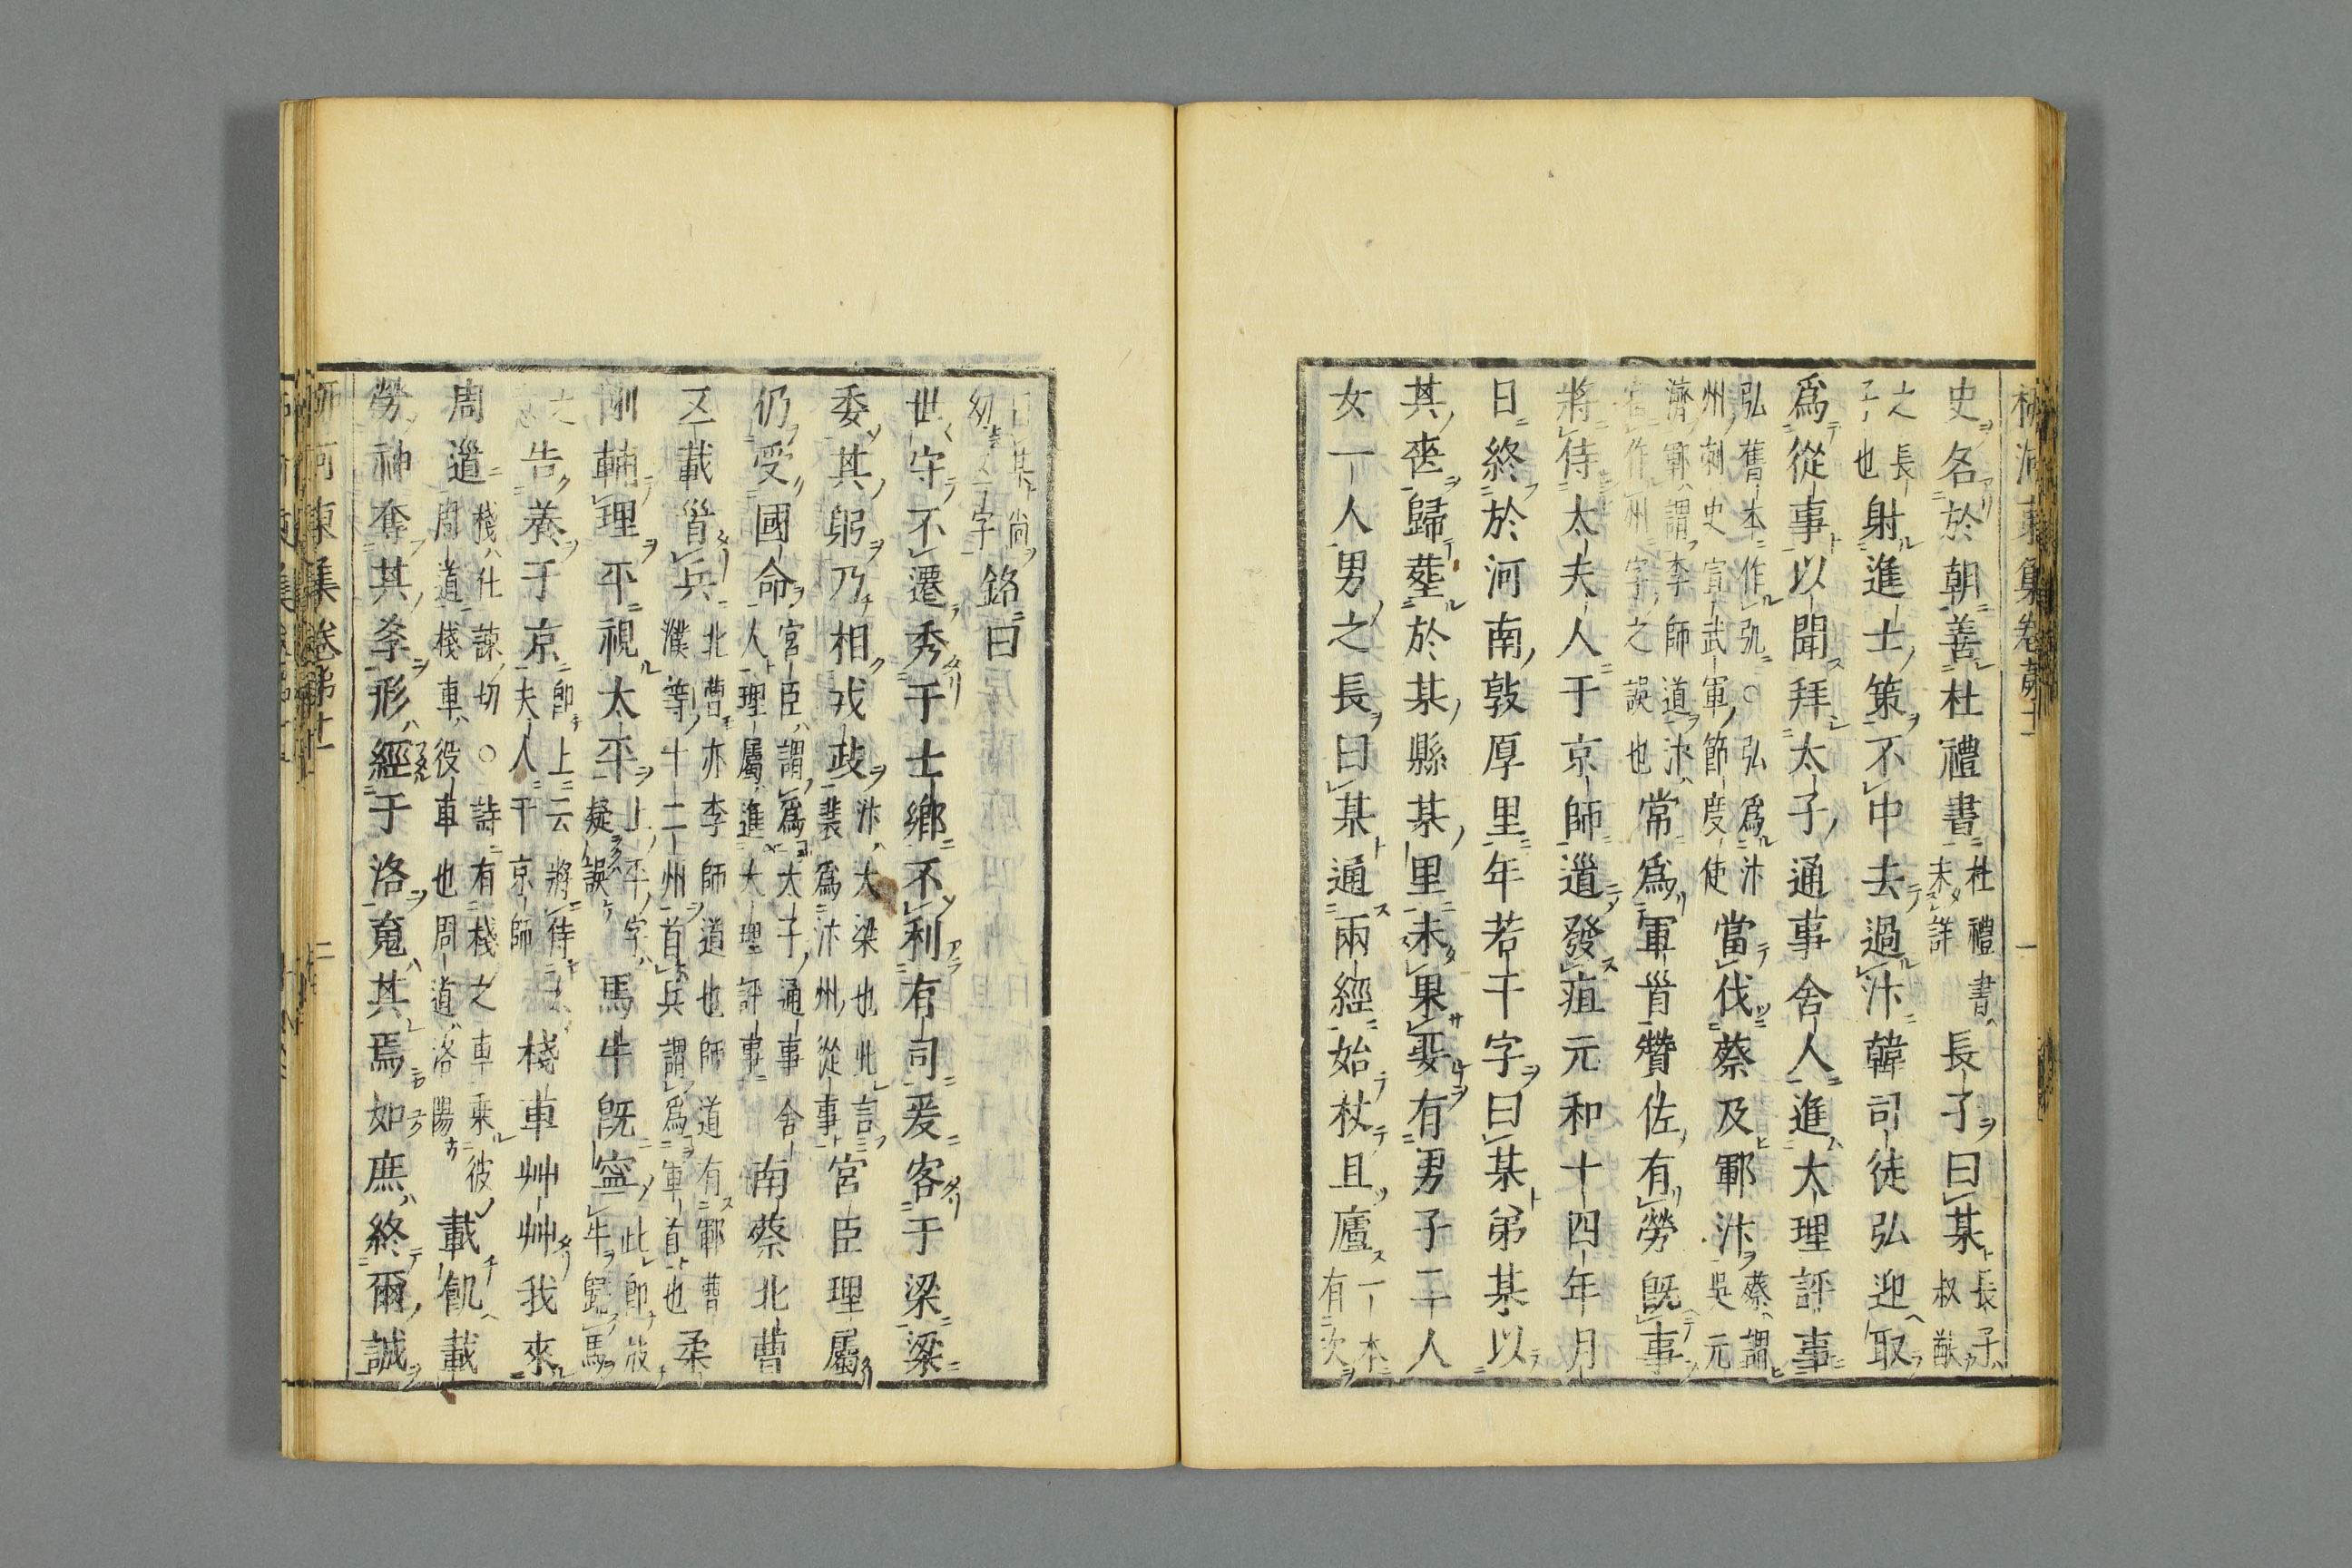 史名於朝善杜禮書杜禮書未詳長子曰某長子叔猷
之長子也射進士策不中去過汴韓司徒弘迎取
爲從事以聞拜太子通事舍人進大理評事
弘舊本作弘○弘爲汴州刺史宣武軍節度使當伐蔡及鄆汴蔡謂吳元
濟鄆謂李師道汴作州字之誤也常爲軍首贊佐有勞旣事
將侍太夫人于京師道發疽元和十四年月
日終於河南敦厚里年若干字曰某弟某以
其喪歸塟於某縣某里未果娶有男子二人
女一人男之長曰某通兩經始杖且廬一本有次
曰某尚幼字銘曰
世守不遷秀于士鄉不利有司爰客于梁梁
委其躬乃相戎政汴大梁也此言裴爲汴州從事宮臣理屬
仍受國命宮臣謂爲太子通事舍人理屬進大理評事南蔡北曹
載首兵北曹亦李師道也師道有鄆曹濮等十二州首兵謂爲軍首也柔
剛輔理平視太平上平字疑誤馬牛旣寧此即放牛歸馬
之告養于京即上云將侍夫人于京師棧車艸艸我來
周道棧仕諫切○詩有棧之車乗彼周道棧車役車也周道洛陽載飢載
勞神奪其孝形經于洛䰟其焉如庶終爾誠
河東集卷第十一 二